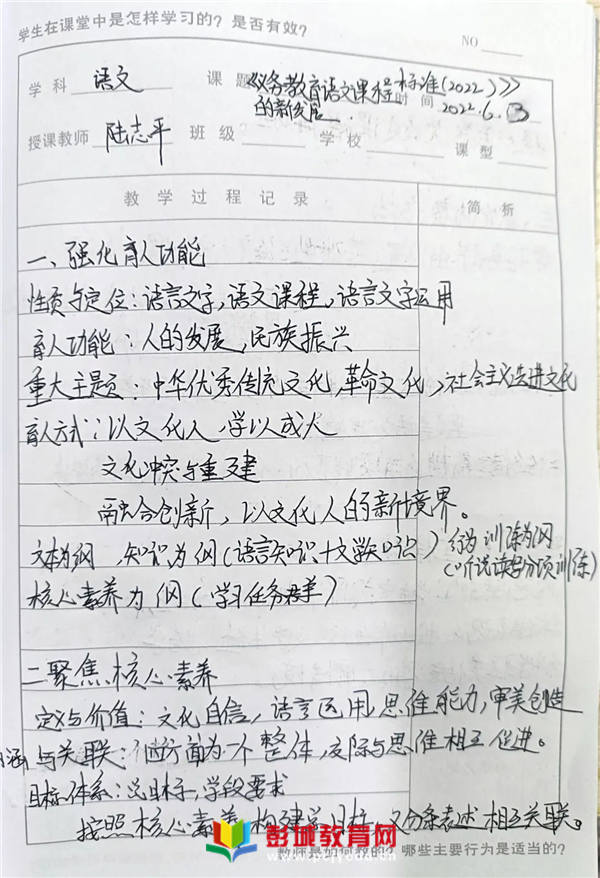 学生在课堂中是怎样学习的？是否有效？
NO
学科 语文 课题 《义务教育语文课程标准(2022)》
的新发展 时间 2022.6.13
授课教师 陆志平 班级 学校 课型
教学过程记录 简析
一、强化育人功能
性质与定位：语言文字，语文课程，语言文字运用
育人功能：人的发展，民族振兴
重大主题：中华优秀传统文化，革命文化，社会主义先进文化
育人方式：以文化人 学以成人
文化冲突与重建
融合创新，以文化人的新境界。
文本为纲，知识为纲（语言知识+文学知识）行为训练为纲
（听说读写分项训练）
核心素养为纲（学习任务群）
二聚焦核心素养
定义与价值：文化自信，语言运用，思维能力，审美创造
内涵与关联：四方面为一个整体，交际与思维相互促进。
目标体系：总目标，学段要求
按照核心素养构建总目标，又分条表述相互关联。
彭城教育网
教师是如何教的？哪些主要行为是适当的？